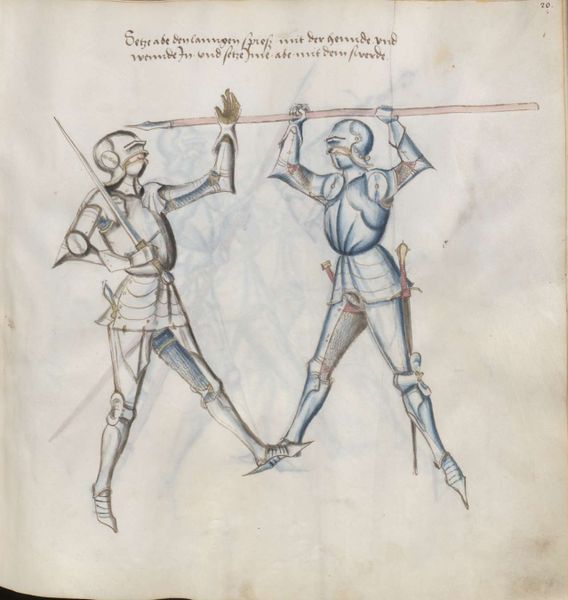 20.
Setze abe den lanngen spiesz mit der hennde vnd
wennde In vnd setze Ime abe mit dem swerde